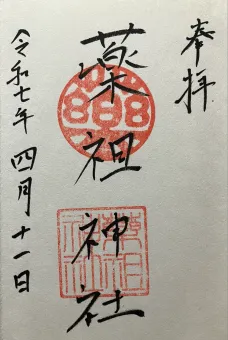 奉拝
薬祖神社
令和七年 四月十一日